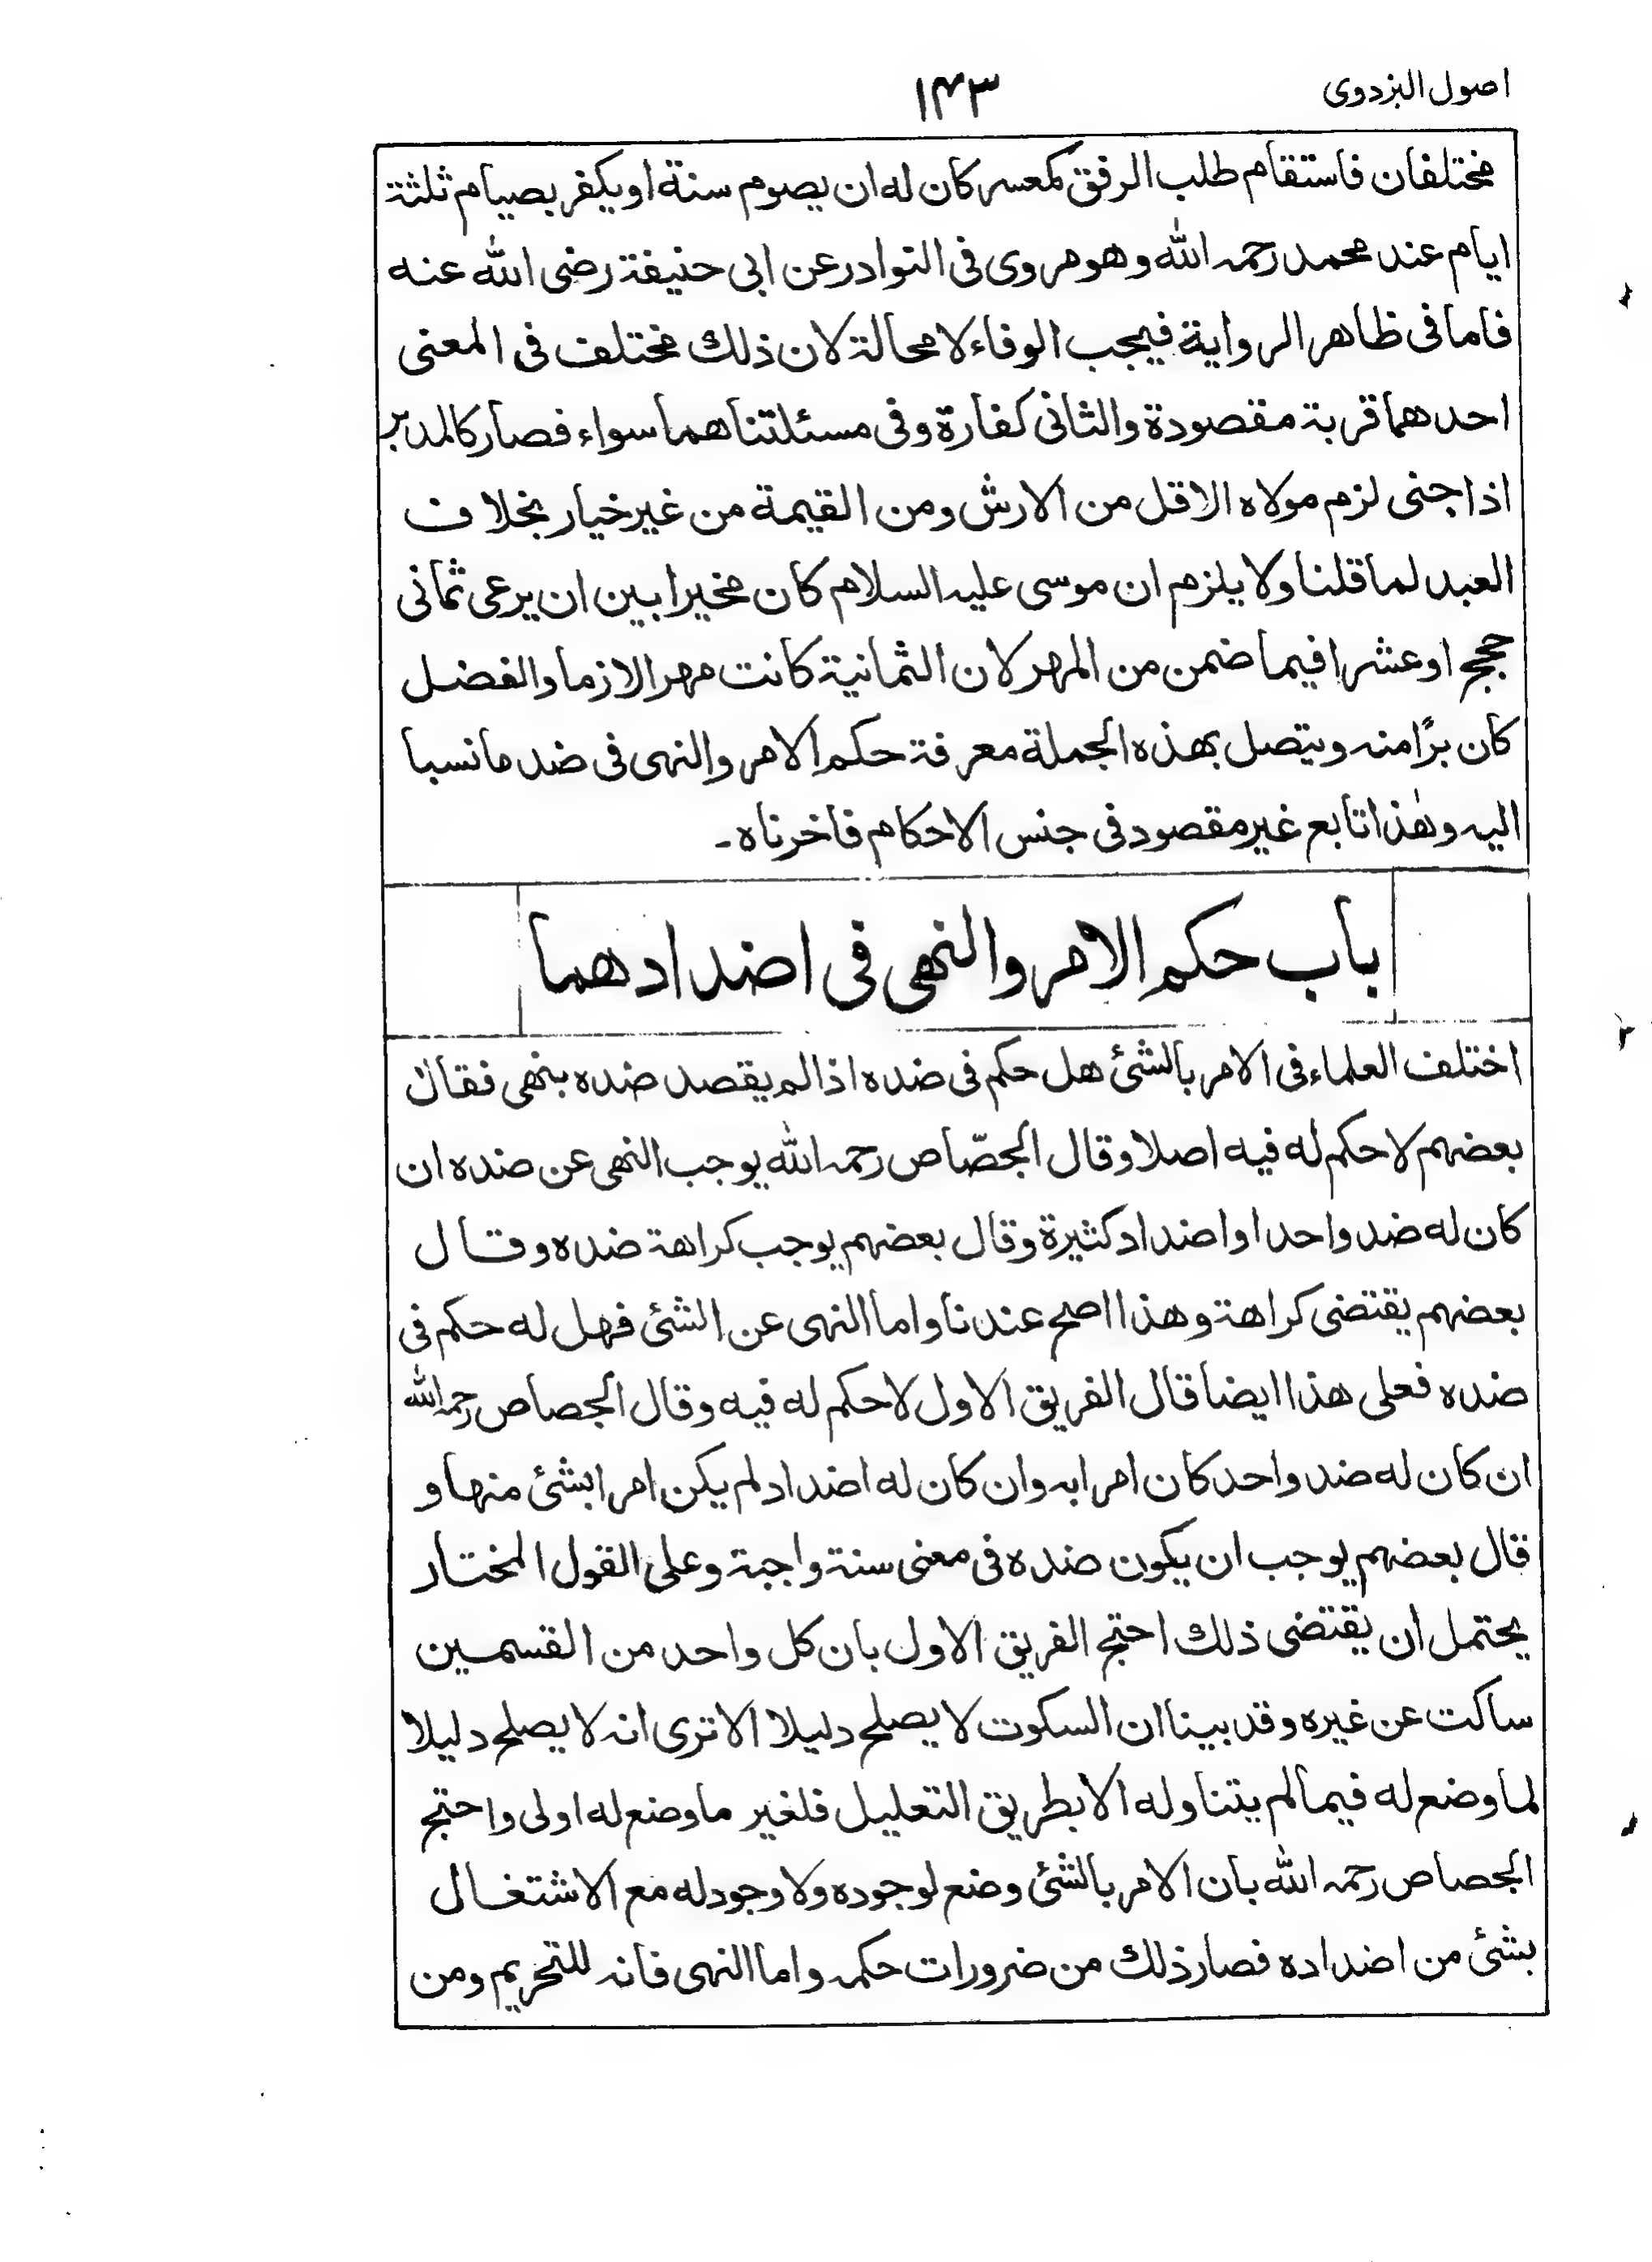 اصول البزدوی
۱۴۳
مختلفان فاستقام طلب الرفق كمعسر كان له ان يصوم سنة او يكفر بصيام ثلثة
ايام عند محمد رحمه الله وهو مروى فى النوادر عن ابى حنيفة رضى الله عنه
فاما فى ظاهر الرواية فيجب الوفاء لا محالة لان ذلك مختلف فى المعنى
احدهما قربة مقصودة والثانى كفارة وفى مسئلتنا هما سواء فصار كالمدبر
اذا جنى لزم مولاه الاقل من الارش ومن القيمة من غير خيار بخلاف
العبد لما قلنا ولا يلزم ان موسى عليه السلام كان مخيرا بين ان يرعى ثمانى
حجج او عشرا فيما ضمن من المهر لان الثمانية كانت مهرا لازما والفضل
كان برًا منه ويتصل بهذه الجملة معرفة حكم الامر والنهى فى ضد ما نسبا
اليه وهٰذا تابع غير مقصود فى جنس الاحكام فاخرناه۔
باب حكم الامر والنهى فى اضدادهما
اختلف العلماء فى الامر بالشئ هل حكم فى ضده اذا لم يقصد ضده بنهى فقال
بعضهم لا حكم له فيه اصلا وقال الجصّاص رحمه الله يوجب النهى عن ضده ان
كان له ضد واحد او اضداد كثيرة وقال بعضهم يوجب كراهة ضده وقال
بعضهم يقتضى كراهة وهذا اصح عندنا واما النهى عن الشئ فهل له حكم فى
ضده فعلى هذا ايضا قال الفريق الاول لا حكم له فيه وقال الجصاص رحمه الله
ان كان له ضد واحد كان امرا به وان كان له اضداد لم يكن امرا بشئ منها و
قال بعضهم يوجب ان يكون ضده فى معنى سنة واجبة وعلى القول المختار
يحتمل ان يقتضى ذلك احتج الفريق الاول بان كل واحد من القسمين
ساكت عن غيره وقد بينا ان السكوت لا يصلح دليلا الا ترى انه لا يصلح دليلا
لما وضع له فيما لم يتناوله الا بطريق التعليل فلغير ما وضع له اولى واحتج
الجصاص رحمه الله بان الامر بالشئ وضع لوجوده ولا وجود له مع الاشتغال
بشئ من اضداده فصار ذلك من ضرورات حكمه واما النهى فانه للتحريم ومن